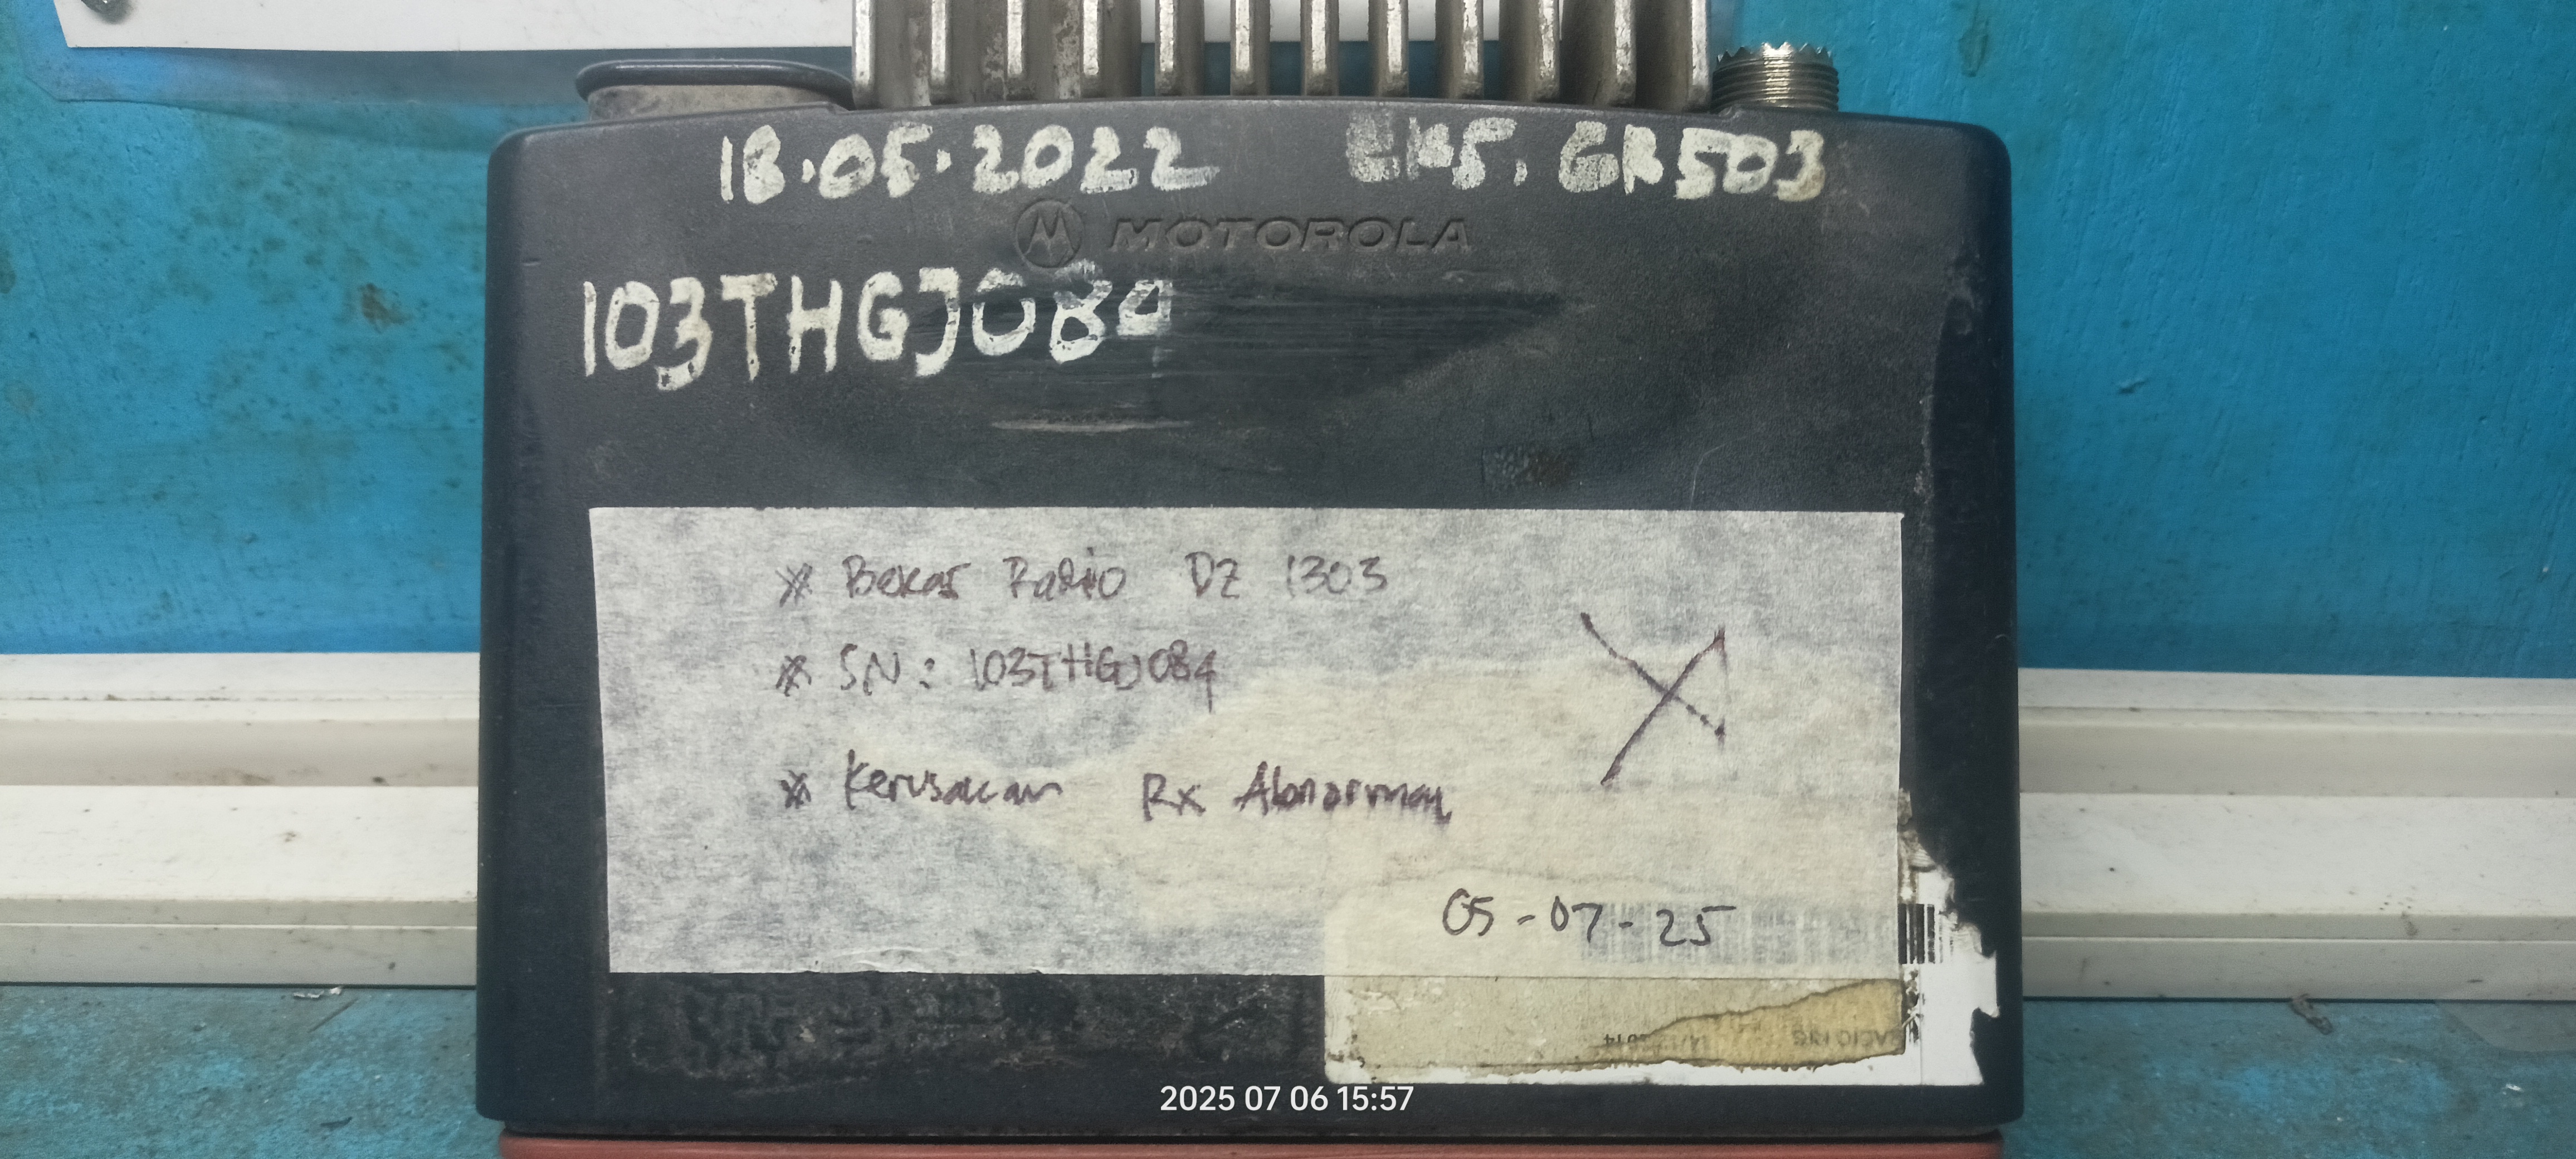 18.05.2022 GR503
MOTOROLA
103THGJ084
* Bekas Radio DZ 1303
* SN : 103THGJ084
* Kerusakan Rx Abnormal
05-07-25
2025 07 06 15:57